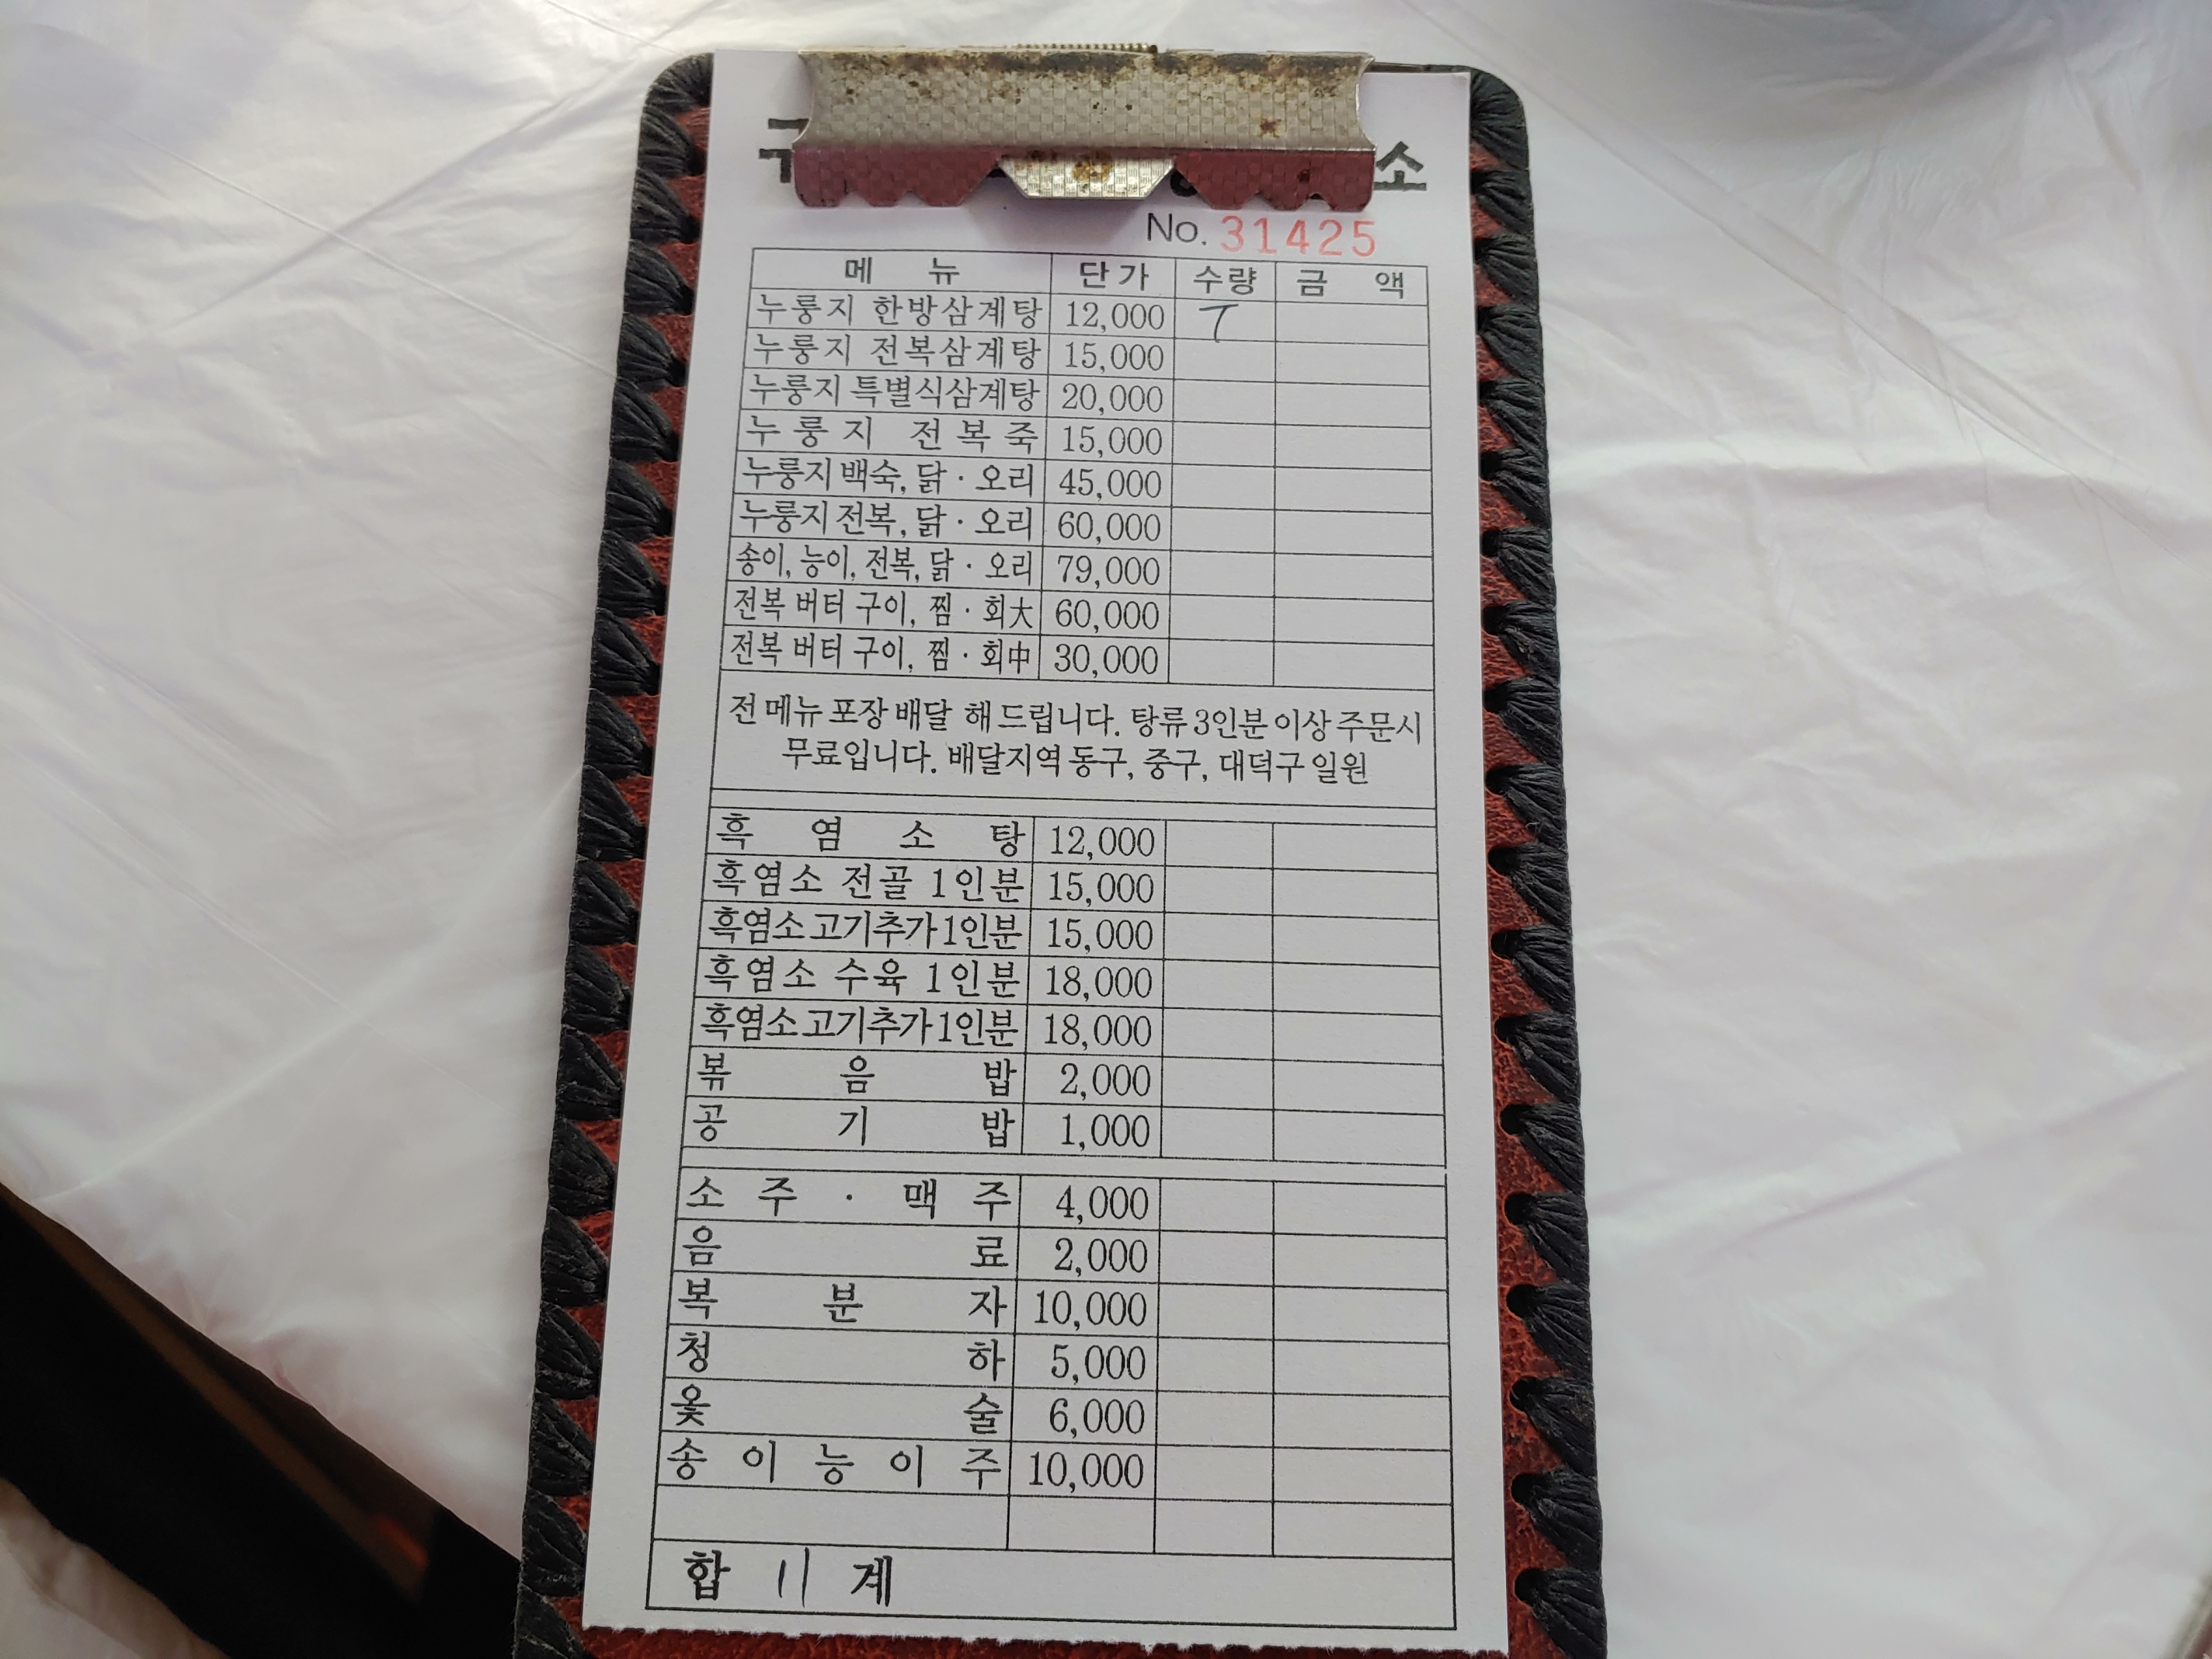 소
No. 31425
메 뉴 단가 수량 금 액
누룽지 한방삼계탕 12,000
누룽지 전복삼계탕 15,000
누룽지 특별식삼계탕 20,000
누룽지 전복죽 15,000
누룽지 백숙, 닭 · 오리 45,000
누룽지 전복, 닭 · 오리 60,000
송이, 능이, 전복, 닭 · 오리 79,000
전복 버터 구이, 찜 · 회大 60,000
전복 버터 구이, 찜 · 회中 30,000
전 메뉴 포장 배달 해 드립니다. 탕류 3인분 이상 주문시
무료입니다. 배달지역 동구, 중구, 대덕구 일원
흑 염 소 탕 12,000
흑염소 전골 1인분 15,000
흑염소고기추가1인분 15,000
흑염소 수육 1인분 18,000
흑염소고기추가1인분 18,000
볶 음 밥 2,000
공 기 밥 1,000
소 주 · 맥 주 4,000
음 료 2,000
복 분 자 10,000
청 하 5,000
옻 술 6,000
송 이 능 이 주 10,000
합 11 계